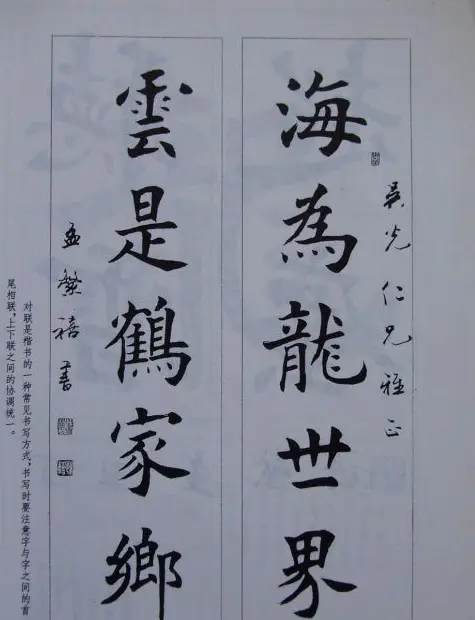 光仁兄雅正
海為龍世界
雲是鶴家鄉
孟繁禧書
对联是楷书的一种常见书写方式，书写时要注意字与字之间的首
尾相联，上下联之间的协调统一。